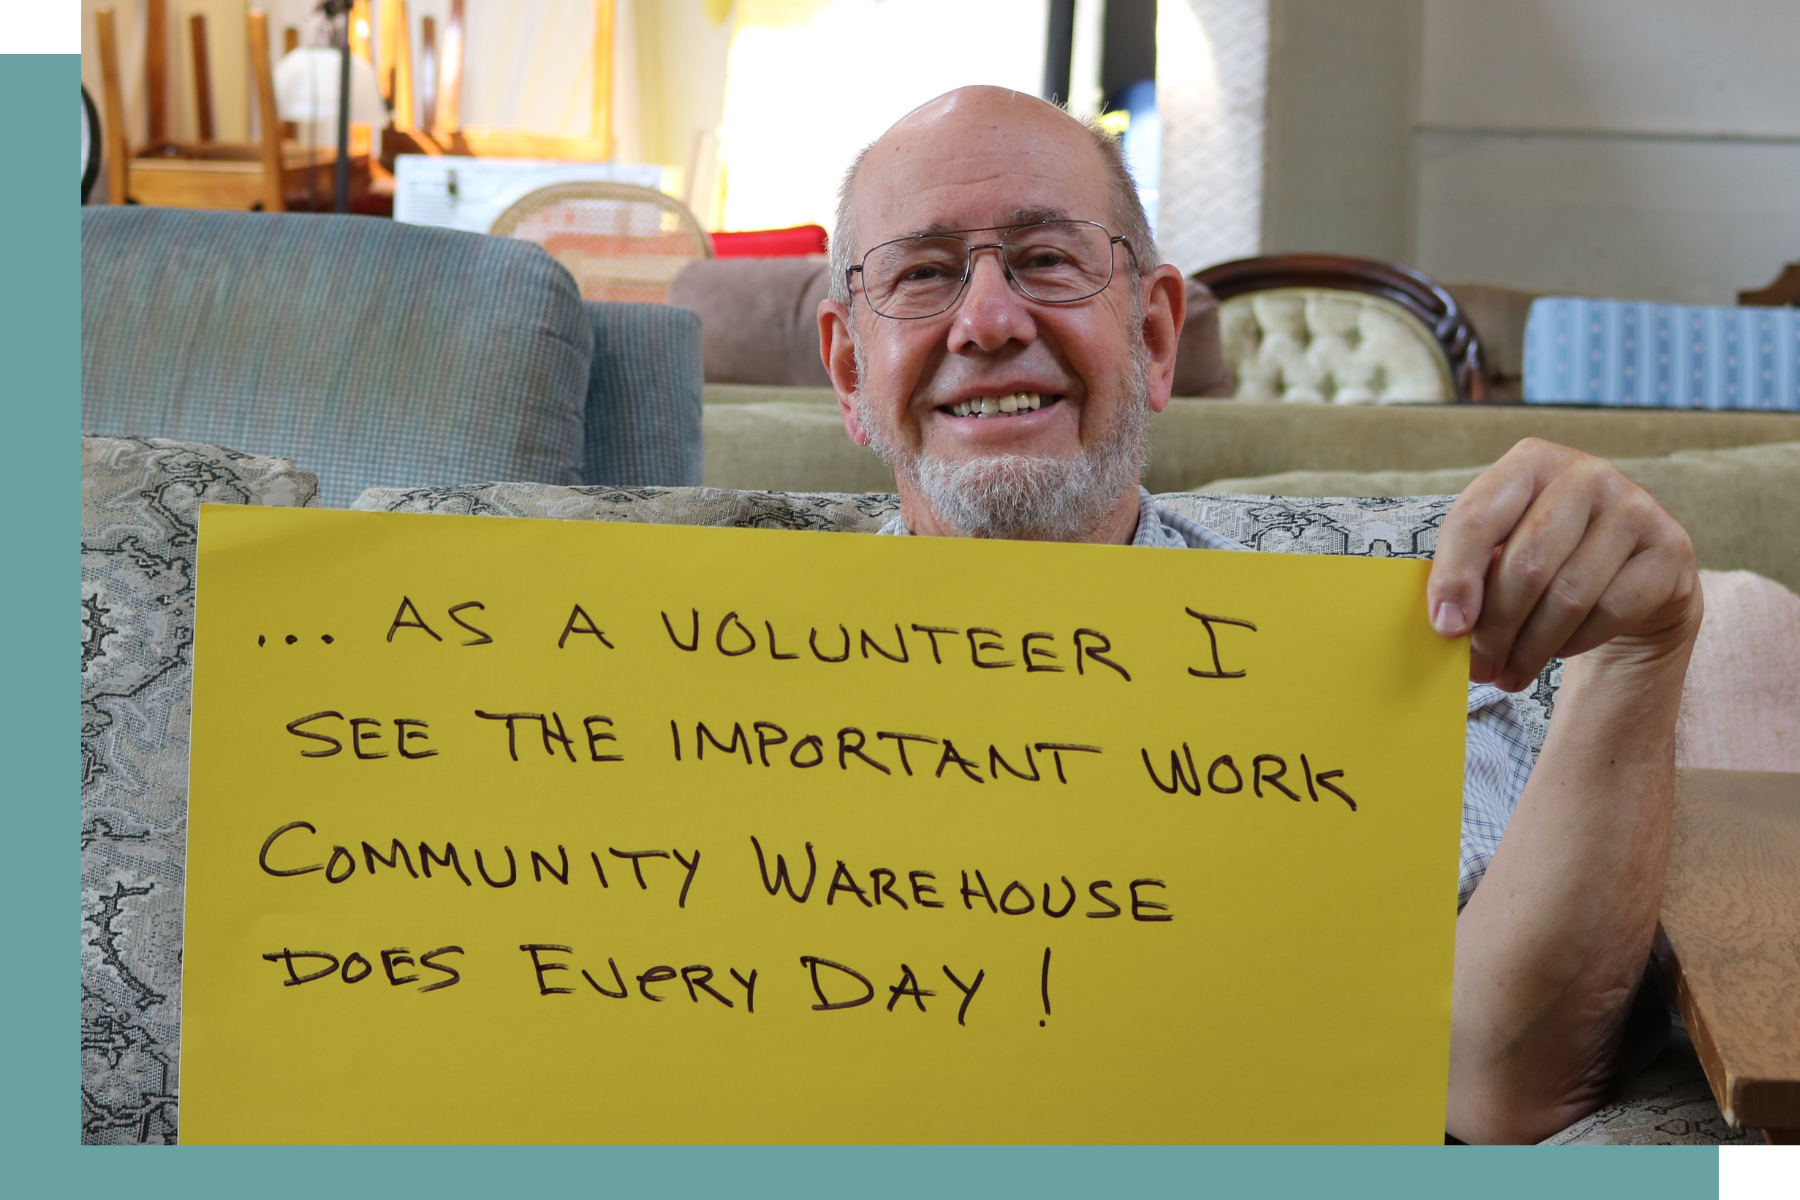 ... AS A VOLUNTEER I
SEE THE IMPORTANT WORK
COMMUNITY WAREHOUSE
DOES EVERY DAY !